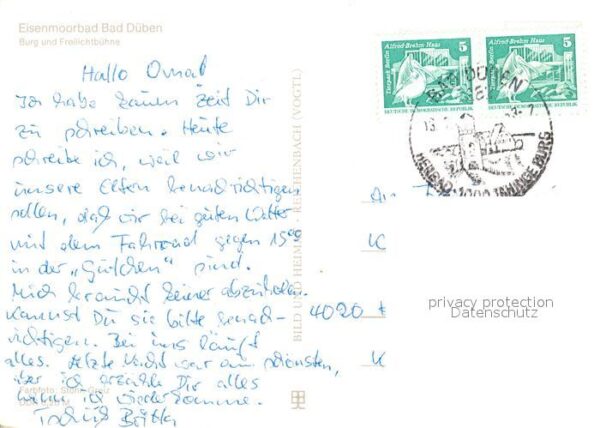 Eisenmoorbad Bad Düben
Burg und Freilichtbühne
Hallo
Ich habe kaum Zeit Dir
zu schreiben. Heute
schreibe ich, weil wir
unsere Eltern benachrichtigen
sollen, daß wir bei gutem Wetter
mit dem Fahrrad gegen 15⁰⁰
in der „ “ sind.
Mich braucht keiner abzuholen.
Kannst Du sie bitte benach-
richtigen. Bei uns läuft
alles. Letzte Nacht war am schönsten,
aber ich erzähle Dir alles
wenn ich wiederkomme.
Tschüß
Farbfoto:
BILD UND HEIMAT REICHENBACH (VOGTL)
Alfred-Brehm-Haus 5
Tierpark Berlin
DEUTSCHE DEMOKRATISCHE REPUBLIK
Alfred-Brehm-Haus 5
Tierpark Berlin
DEUTSCHE DEMOKRATISCHE REPUBLIK
BAD DÜBEN
1000 JAHRE BURG
An
4020
privacy protection
Datenschutz